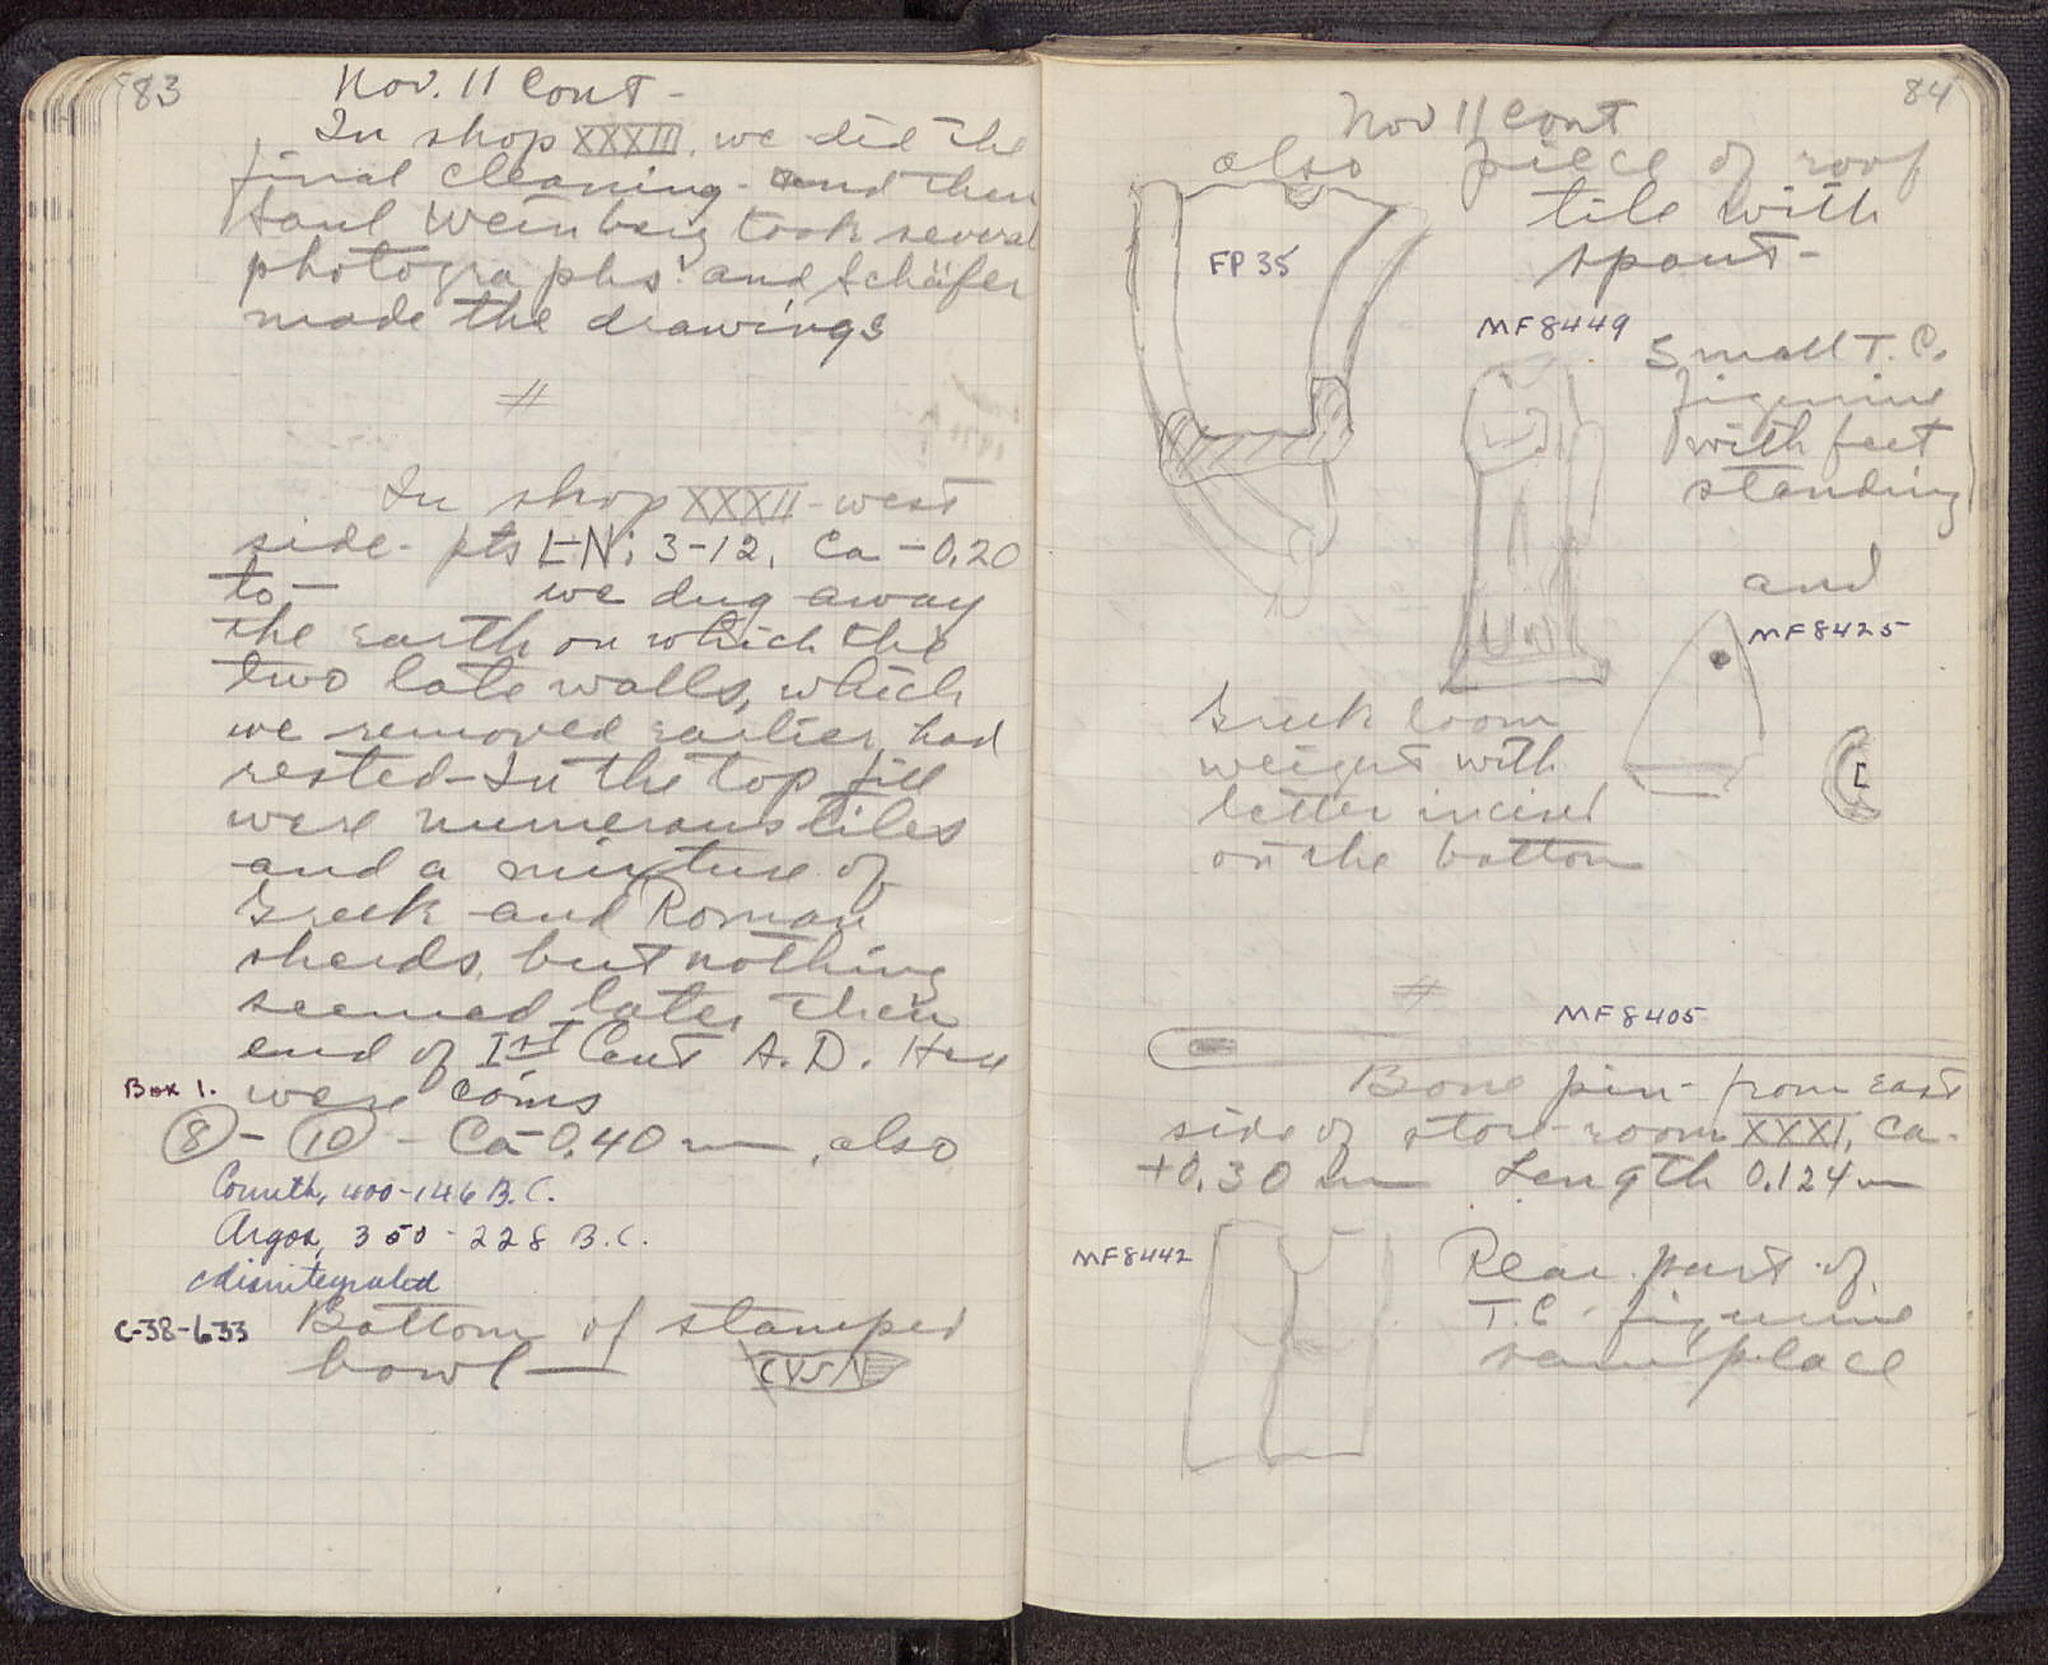 83
Nov. 11 Cont -
In shop XXXIII, we did the
final cleaning - and then
Saul Weinberg took several
photographs and Schäfer
made the drawings
//
In shop XXXII - west
side - pts L-N; 3-12, Ca - 0.20
to - we dug away
the earth on which the
two late walls, which
we removed earlier, had
rested - In the top fill
were numerous tiles
and a mixture of
Greek and Roman
sherds, but nothing
seemed later then
end of Ist Cent A.D. Here
Box 1. were coins
8 - 10 - Ca - 0.40 m, also
Corinth, 400-146 B.C.
Argos, 350-228 B.C.
disintegrated
C-38-633 Bottom of stamped
bowl -
84
Nov 11 Cont
also piece of roof
tile with
spout -
FP 35
MF 8449
Small T.C.
figurine
with feet
standing
and
MF 8425
Greek loom
weight with
letter incised
on the bottom
E
//
MF 8405
Bone pin - from east
side of store-room XXXI, Ca -
+0.30 m Length 0.124 m
MF 8442
Rear part of
T.C. figurine
same place